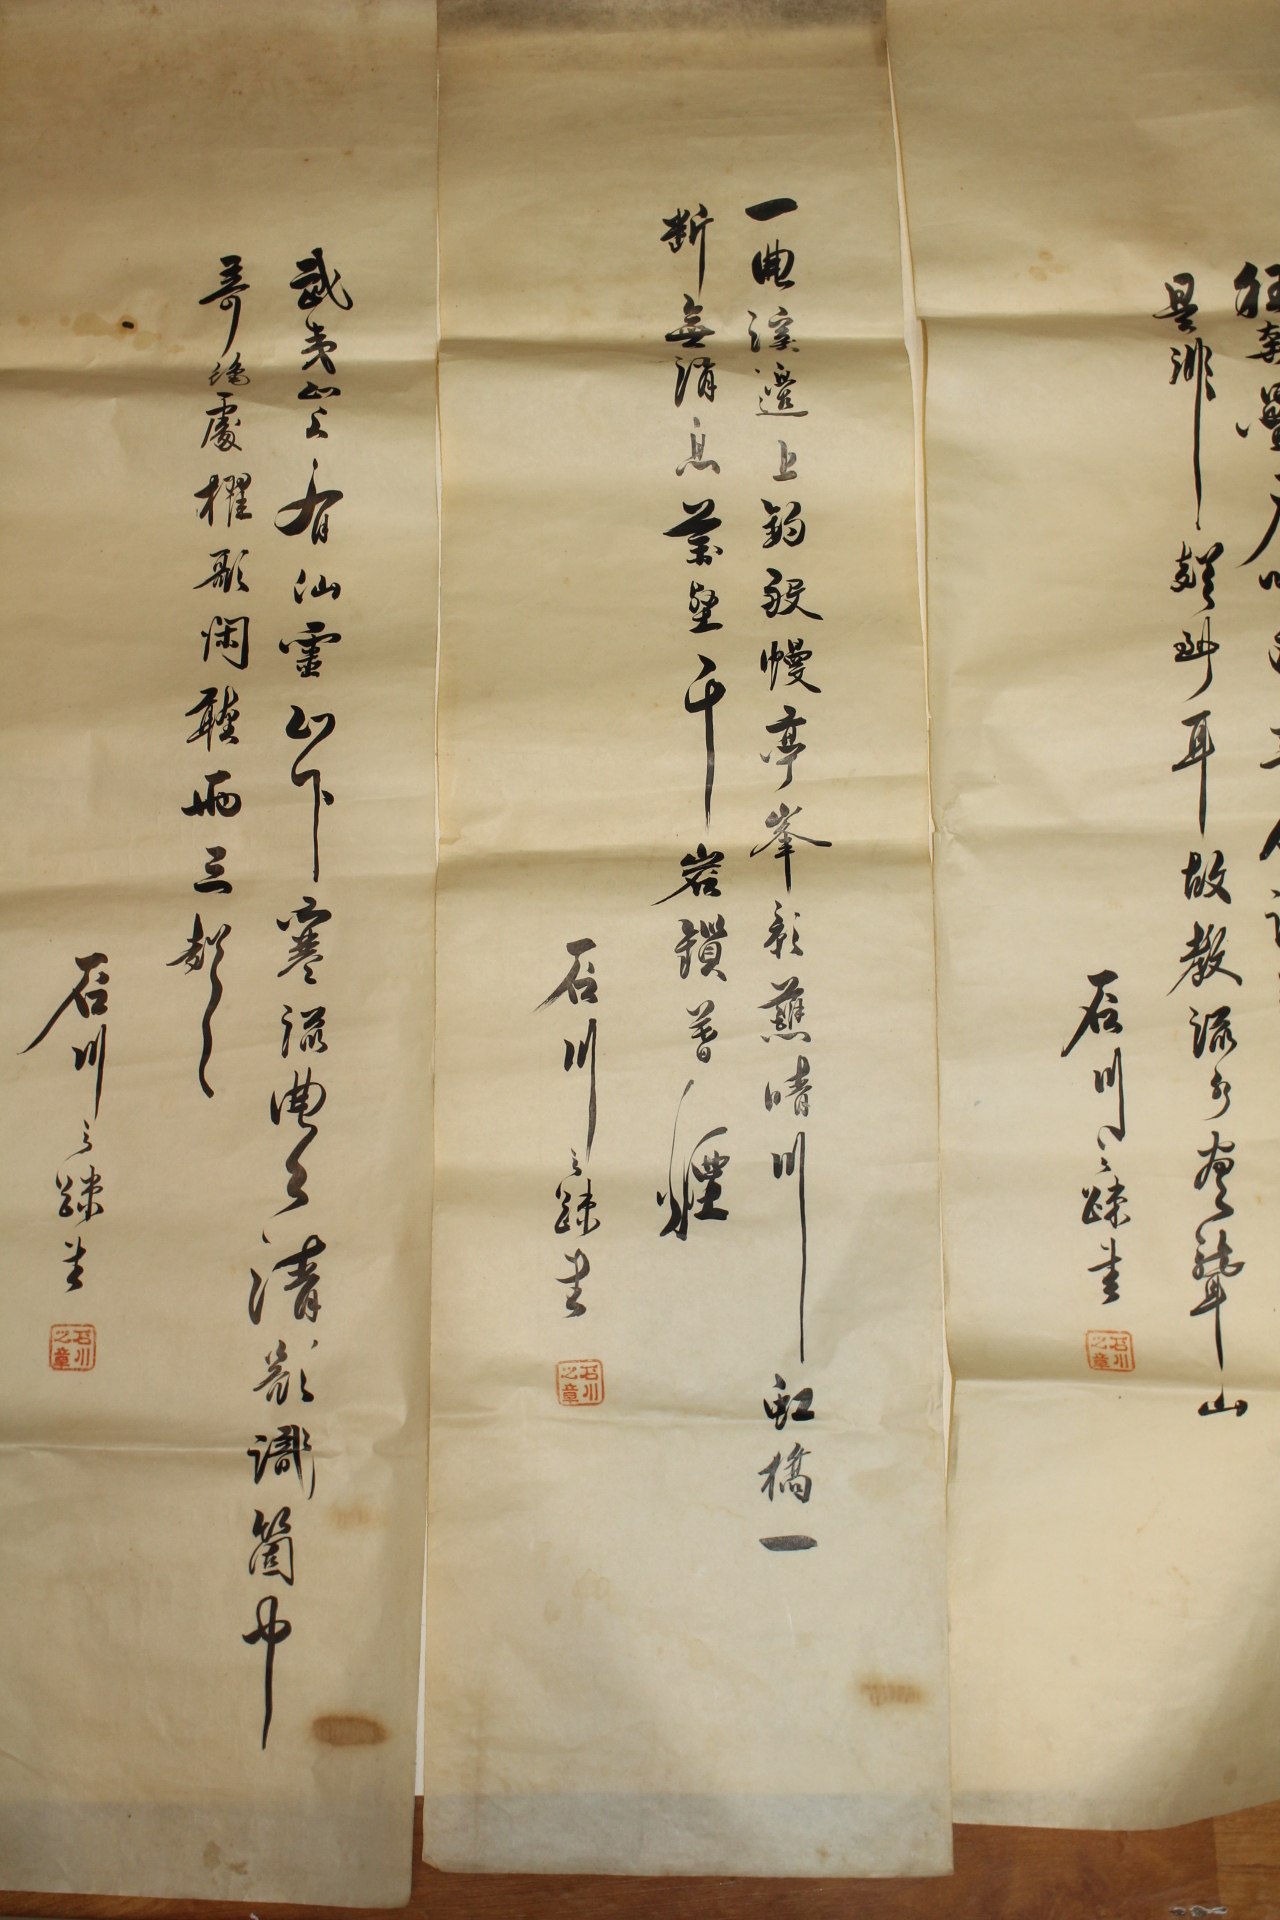 狂奔疊石吼
是非聲到耳故教流水盡聾山
石川之踈書
石川之章
一曲溪邊上釣舩幔亭峯影蘸晴川虹橋一
斷無消息萬壑千岩鎖暮煙
石川之踈書
石川之章
武夷山上有仙靈山下寒流曲〻清欲識箇中
奇絶處櫂歌閑聽兩三聲
石川之踈書
石川之章